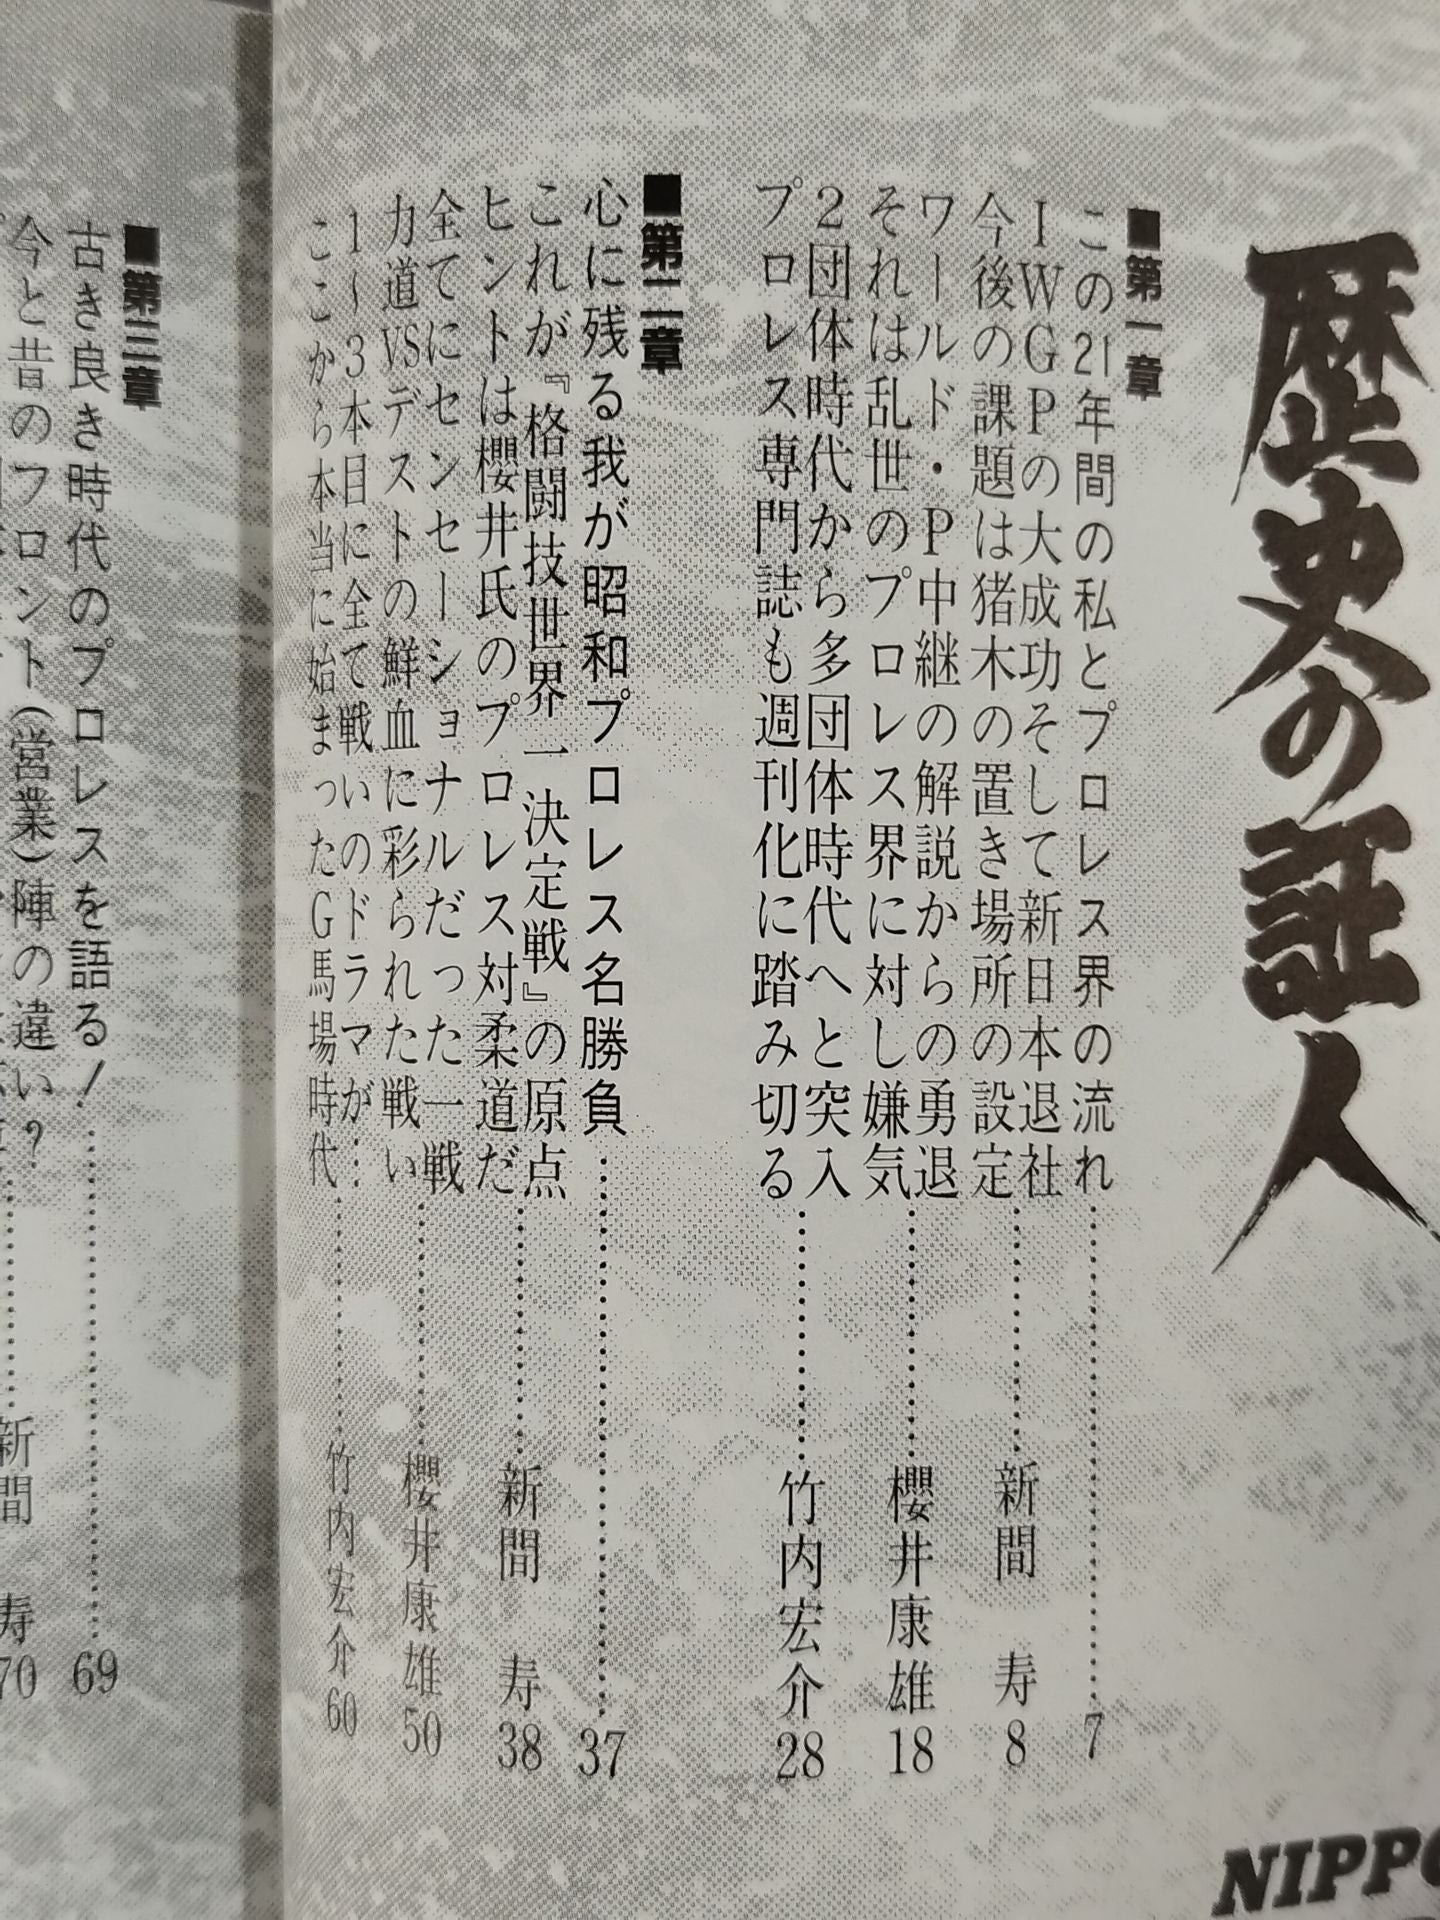 歴史の証人
■第一章
この21年間の私とプロレス界の流れ……7
IWGPの大成功そして新日本退社
今後の課題は猪木の置き場所の設定……新間 寿 8
ワールド・P中継の解説からの勇退
それは乱世のプロレス界に対し嫌気……櫻井康雄 18
2団体時代から多団体時代へと突入
プロレス専門誌も週刊化に踏み切る……竹内宏介 28
■第二章
心に残る我が昭和プロレス名勝負……37
これが『格闘技世界一決定戦』の原点
ヒントは櫻井氏のプロレス対柔道だ……新間 寿 38
全てにセンセーショナルだった一戦
力道VSデストの鮮血に彩られた戦い……櫻井康雄 50
1〜3本目に全て戦いのドラマが…
ここから本当に始まったG馬場時代……竹内宏介 60
■第三章
古き良き時代のプロレスを語る！……69
今と昔のフロント(営業)陣の違い？……新間 寿 70
NIPPO